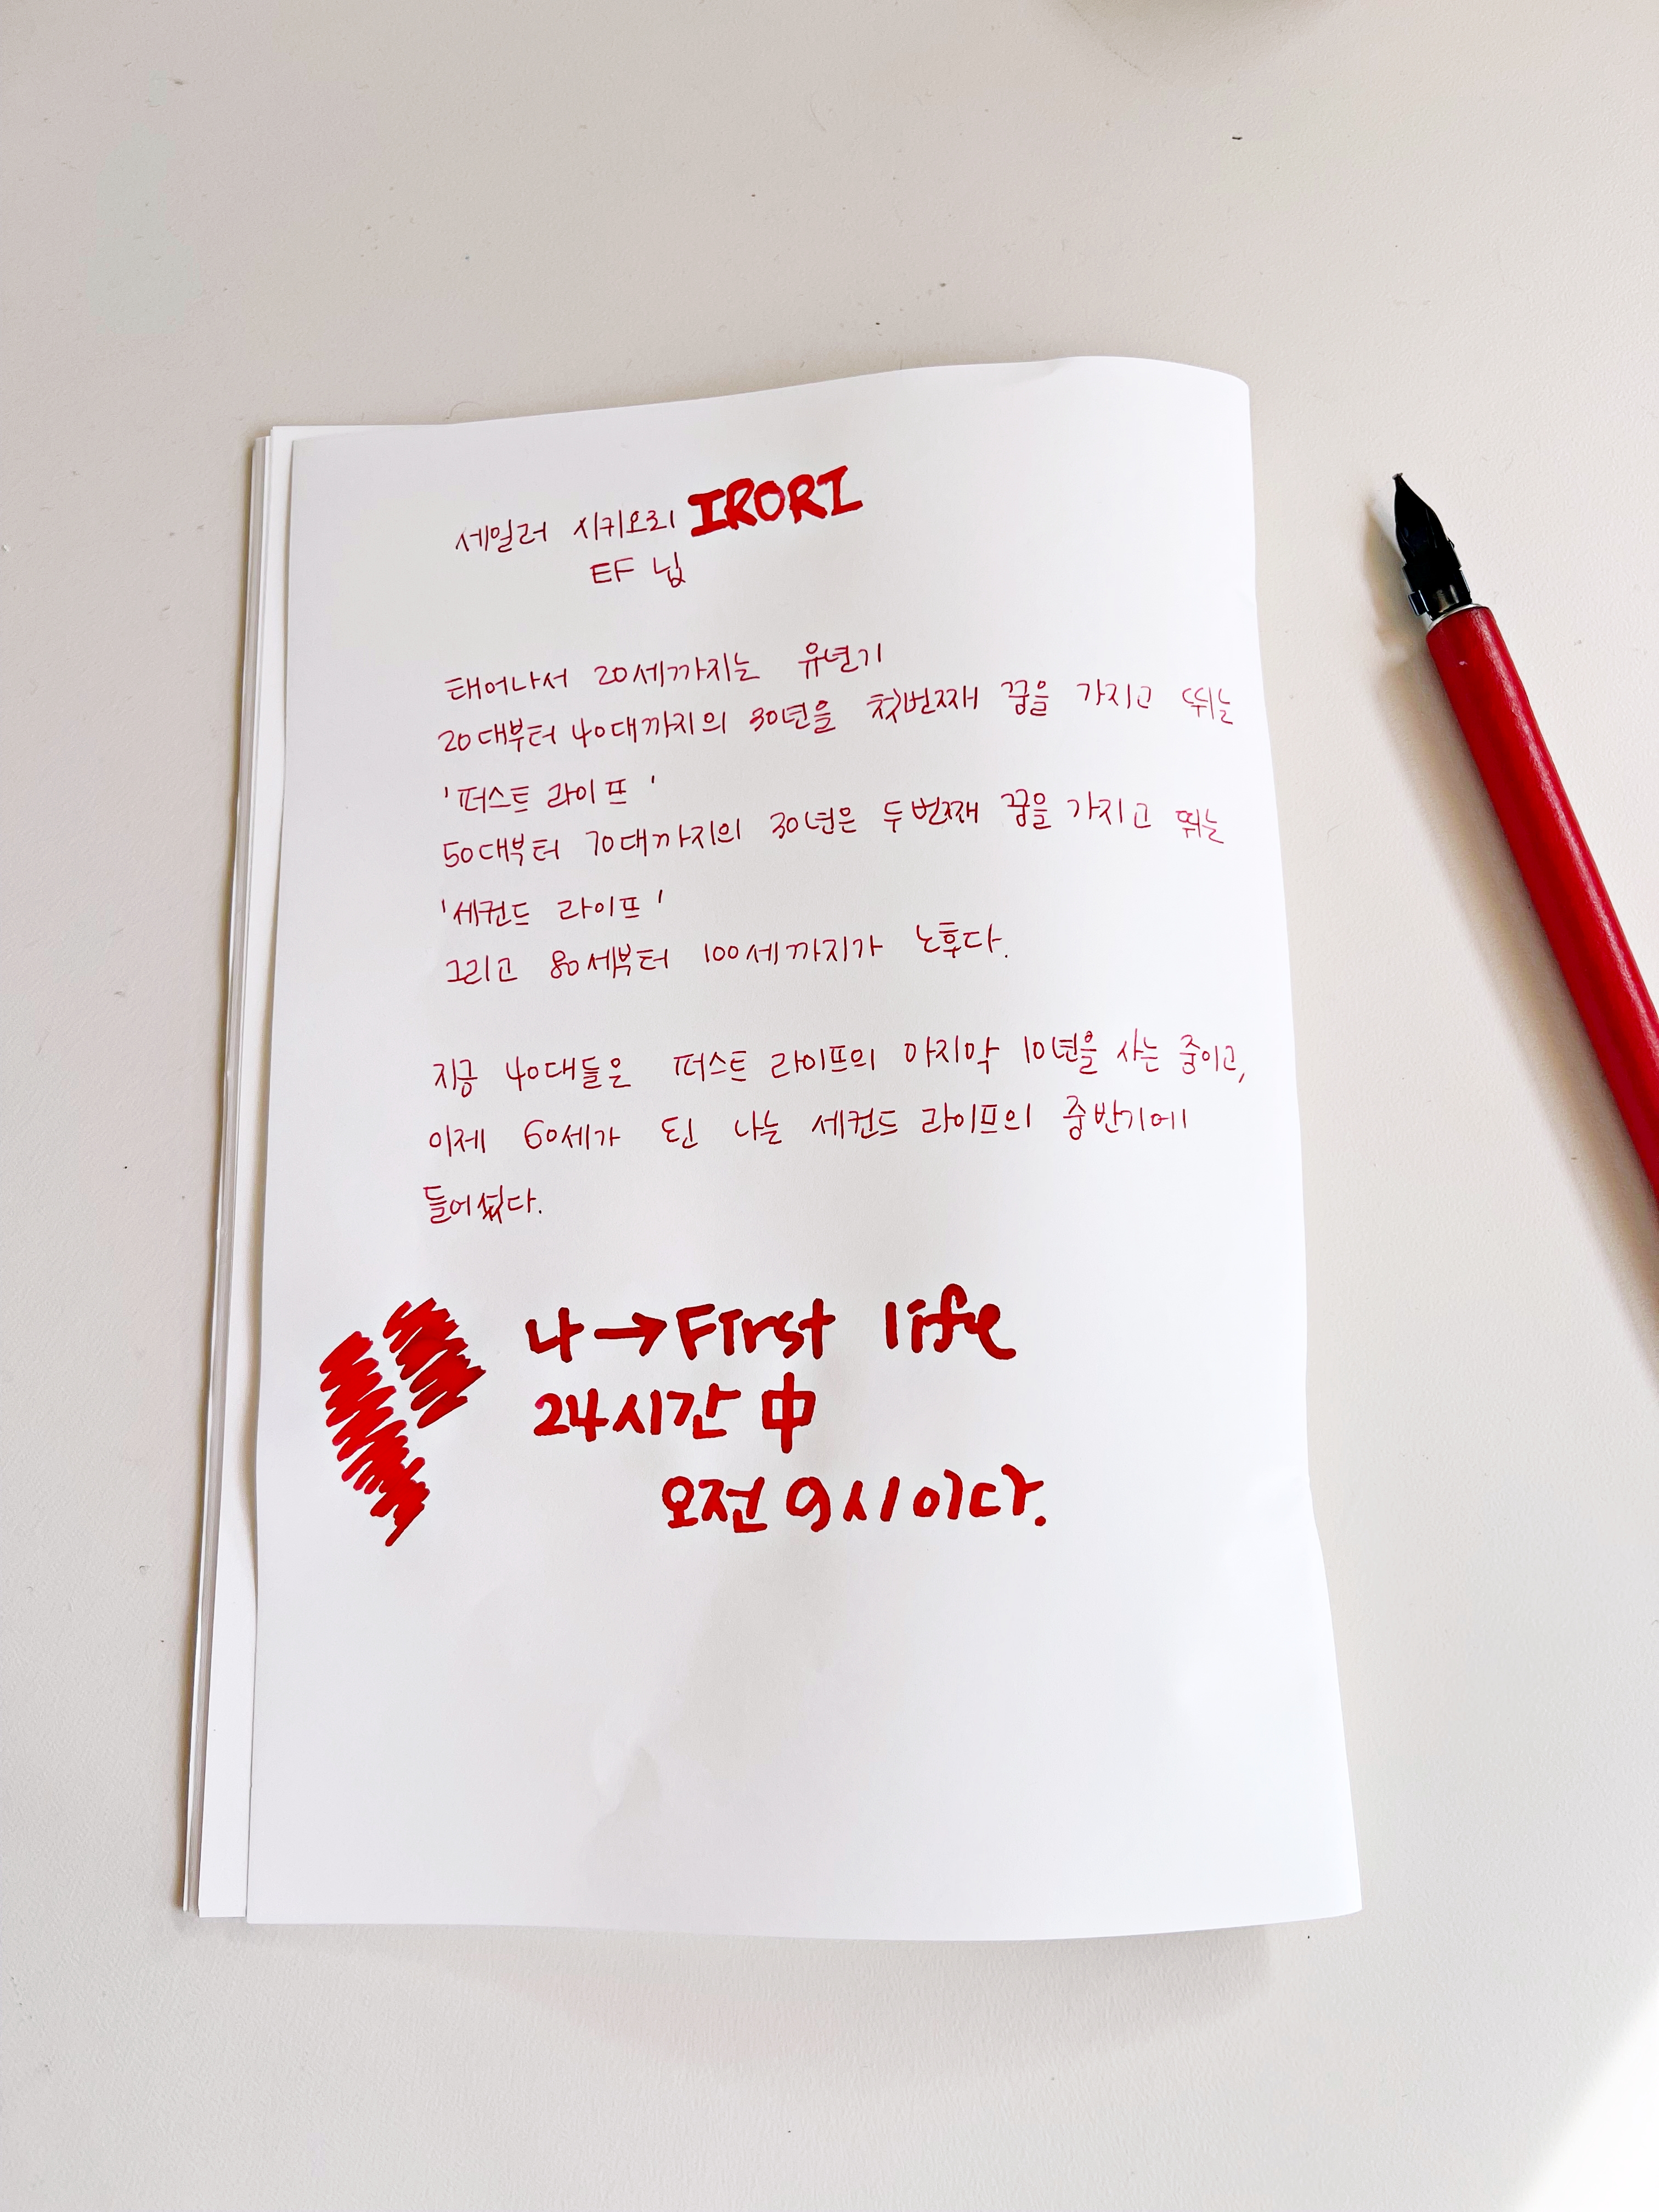 세일러 시키오리 IRORI
EF 닙
태어나서 20세까지는 유년기
20대부터 40대까지의 30년을 첫번째 꿈을 가지고 뛰는
'퍼스트 라이프'
50대부터 70대까지의 30년은 두번째 꿈을 가지고 뛰는
'세컨드 라이프'
그리고 80세부터 100세까지가 노후다.
지금 40대들은 퍼스트 라이프의 마지막 10년을 사는 중이고,
이제 60세가 된 나는 세컨드 라이프의 중반기에
들어섰다.
나→First life
24시간 中
오전 9시이다.